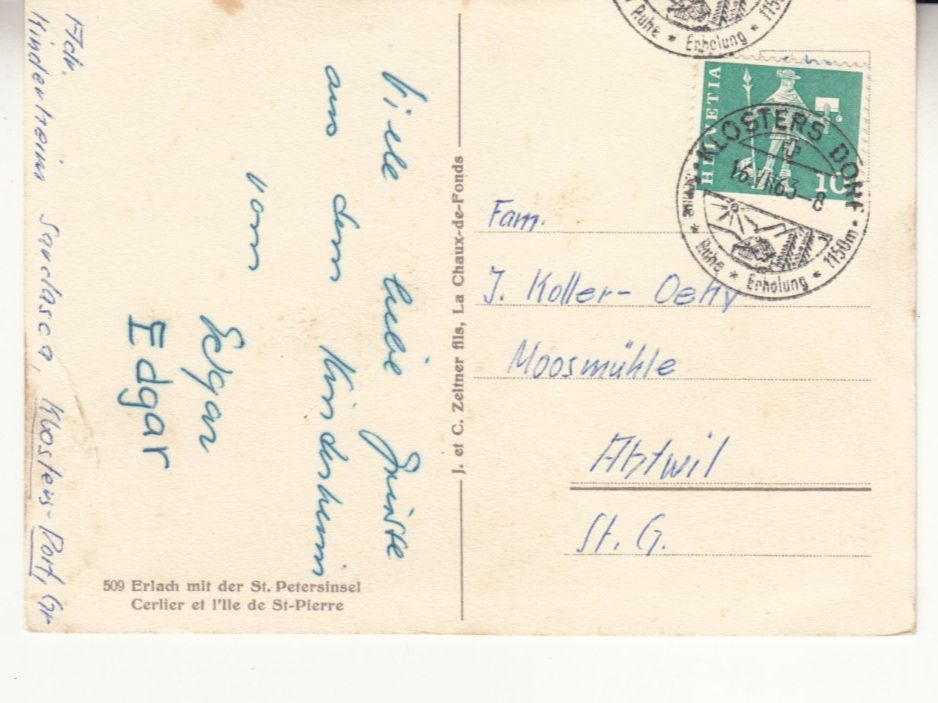 Adr.
Kinderheim Sardasca, Klosters-Dorf, Gr
Viele liebe Grüsse
aus dem Kinderheim
vom
Edgar
Edgar
509 Erlach mit der St. Petersinsel
Cerlier et l'Ile de St-Pierre
J. et C. Zeltner fils, La Chaux-de-Fonds
Ruhe * Erholung * 1150
HELVETIA
10
KLOSTERS DORF
63-8
Ruhe * Erholung * 1150m
Fam.
J. Koller-
Moosmühle
Abtwil
St. G.